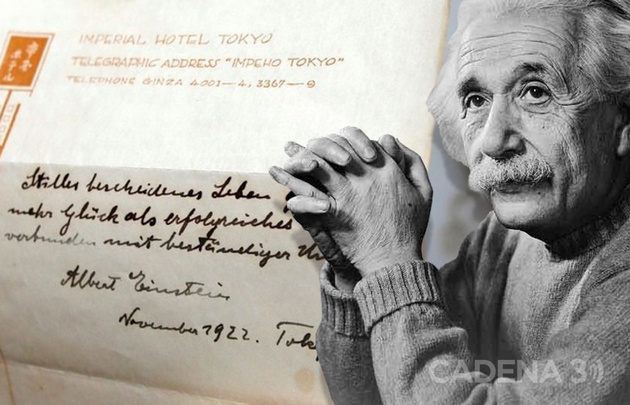 IMPERIAL HOTEL TOKYO
TELEGRAPHIC ADDRESS "IMPEHO TOKYO"
TELEPHONE GINZA 4001—4, 3367—9
Stilles bescheidenes Leben
mehr Glück als erfolgreiches
verbunden mit beständiger Un
Albert Einstein
November 1922. Tok
CADENA 3